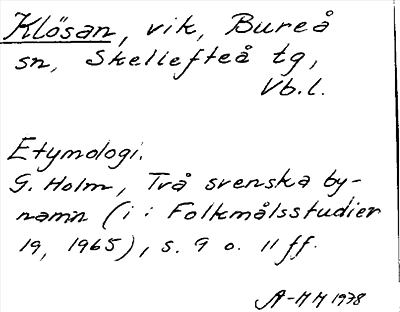 Klösan, vik, Bureå
sn, Skellefteå tg,
Vb.l.
Etymologi.
G. Holm, Två svenska by-
namn (i: Folkmålsstudier
19, 1965), s. 9 o. 11 ff.
A-MM 1978